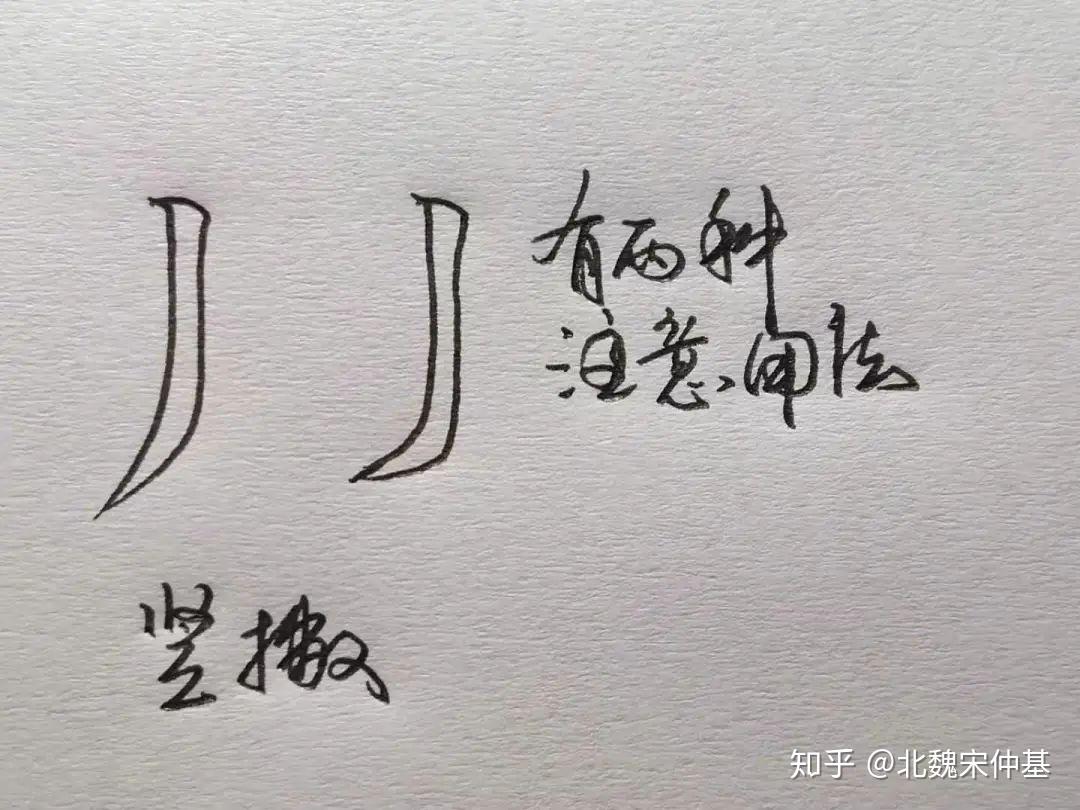 有两种
注意用法
竖撇
知乎 @北魏宋仲基